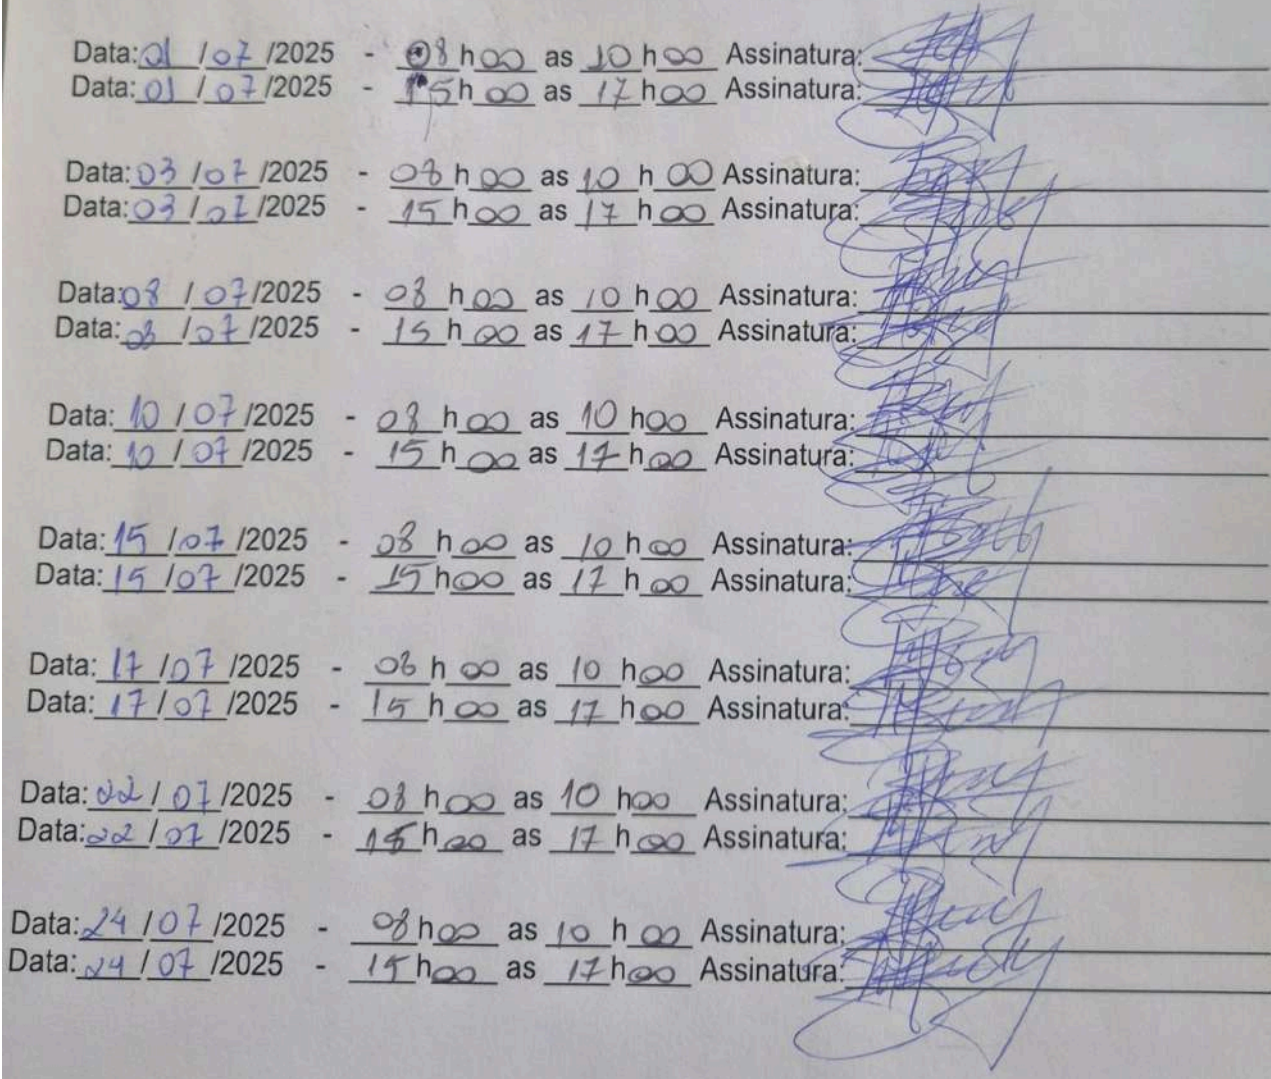 Data: 01 / 07 /2025 - 08 h 00 as 10 h 00 Assinatura:
Data: 01 / 07 /2025 - 15 h 00 as 17 h 00 Assinatura:
Data: 03 / 07 /2025 - 08 h 00 as 10 h 00 Assinatura:
Data: 03 / 07 /2025 - 15 h 00 as 17 h 00 Assinatura:
Data: 08 / 07 /2025 - 08 h 00 as 10 h 00 Assinatura:
Data: 08 / 07 /2025 - 15 h 00 as 17 h 00 Assinatura:
Data: 10 / 07 /2025 - 08 h 00 as 10 h 00 Assinatura:
Data: 10 / 07 /2025 - 15 h 00 as 17 h 00 Assinatura:
Data: 15 / 07 /2025 - 08 h 00 as 10 h 00 Assinatura:
Data: 15 / 07 /2025 - 15 h 00 as 17 h 00 Assinatura:
Data: 17 / 07 /2025 - 08 h 00 as 10 h 00 Assinatura:
Data: 17 / 07 /2025 - 15 h 00 as 17 h 00 Assinatura:
Data: 22 / 07 /2025 - 08 h 00 as 10 h 00 Assinatura:
Data: 22 / 07 /2025 - 15 h 00 as 17 h 00 Assinatura:
Data: 24 / 07 /2025 - 08 h 00 as 10 h 00 Assinatura:
Data: 24 / 07 /2025 - 15 h 00 as 17 h 00 Assinatura: